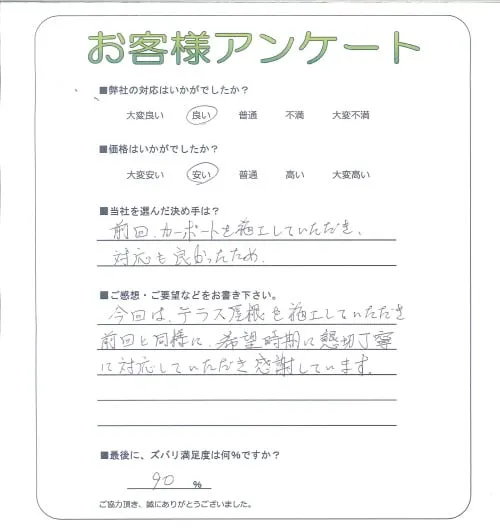 お客様アンケート
■弊社の対応はいかがでしたか？
大変良い 良い 普通 不満 大変不満
■価格はいかがでしたか？
大変安い 安い 普通 高い 大変高い
■当社を選んだ決め手は？
前回、カーポートを施工していただき、
対応も良かったため。
■ご感想・ご要望などをお書き下さい。
今回は、テラス屋根を施工していただき
前回と同様に、希望時期に懇切丁寧
に対応していただき感謝しています。
■最後に、ズバリ満足度は何％ですか？
90 ％
ご協力頂き、誠にありがとうございました。